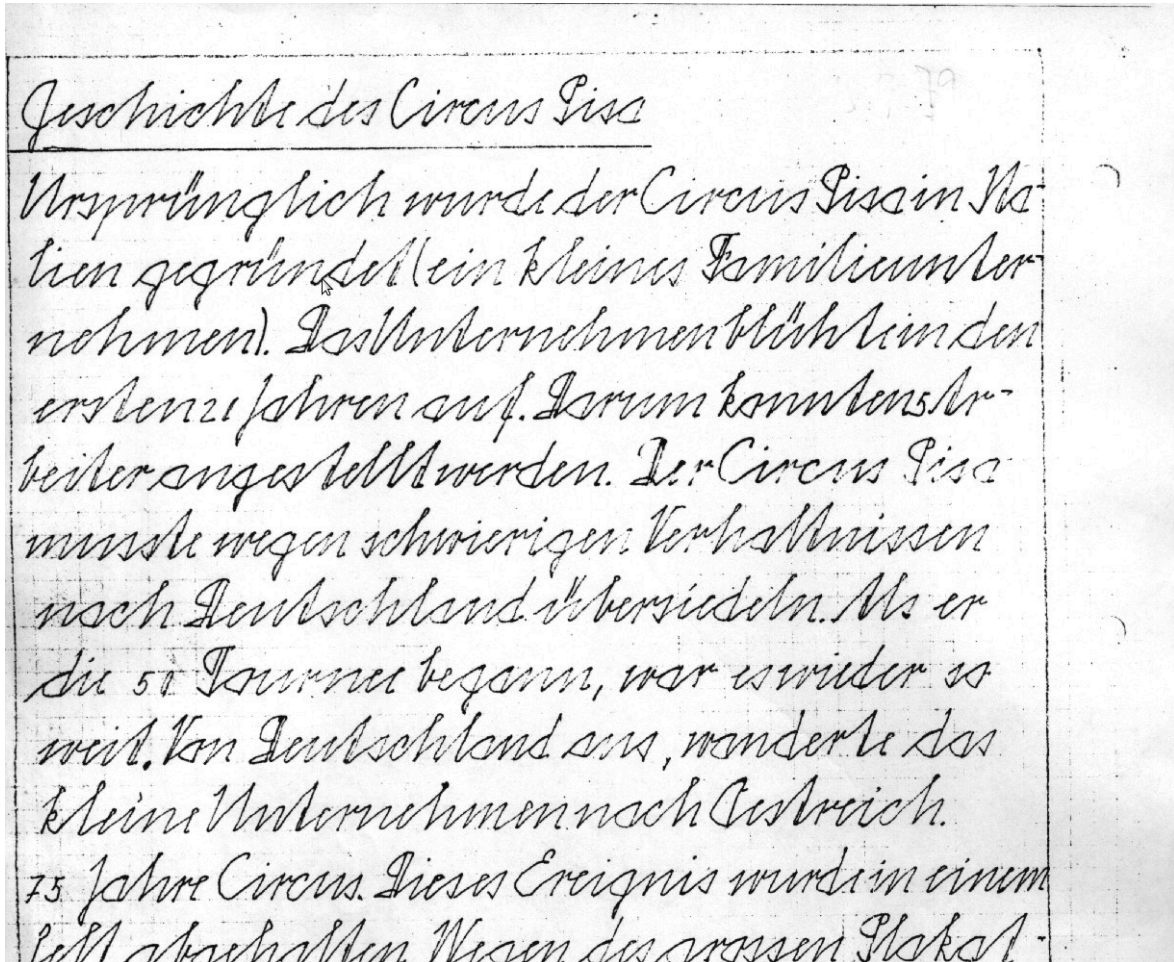 Geschichte des Circus Pisa
Ursprünglich wurde der Circus Pisa in Ita-
lien gegründet (ein kleines Familieunter-
nehmen). Das Unternehmen blühte in den
ersten 21 Jahren auf. Darum konnten 5 Ar-
beiter angestellt werden. Der Circus Pisa
musste wegen schwierigen Verhaltnissen
nach Deutschland übersiedeln. Als er
die 50 Tournee begann, war es wieder so
weit. Von Deutschland aus, wanderte das
kleine Unternehmen nach Oestreich.
75 Jahre Circus. Dieses Ereignis wurde in einem
Zelt abgehalten. Wegen des grossen Plakat-